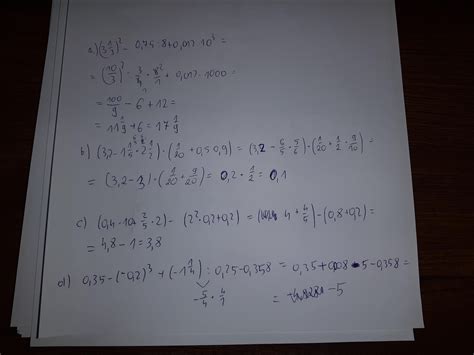 a) (3 1/3)² - 0,75 · 8 + 0,012 · 10³ =
= (10/3)² · 3/4 · 8/1 + 0,012 · 1000
= 100/9 - 6 + 12 =
= 11 1/9 + 6 = 17 1/9
b) (3,2 - 1 1/5 · 2 1/2) · (1/20 + 0,5 · 0,9) = (3,2 - 6/5 · 5/6) · (1/20 + 1/2 · 9/10) =
= (3,2 - 3) · (1/20 + 9/20) = 0,2 · 1/2 = 0,1
c) (0,4 · 10 + 2/5 · 2) - (2² · 0,2 + 0,2) = (4 + 4/5) - (0,8 + 0,2) =
= 4,8 - 1 = 3,8
d) 0,35 - (-0,2)³ + (-1 1/4) : 0,25 - 0,358 = 0,35 + 0,008 - 5 - 0,358 =
- 5/4 · 4/1 = -5